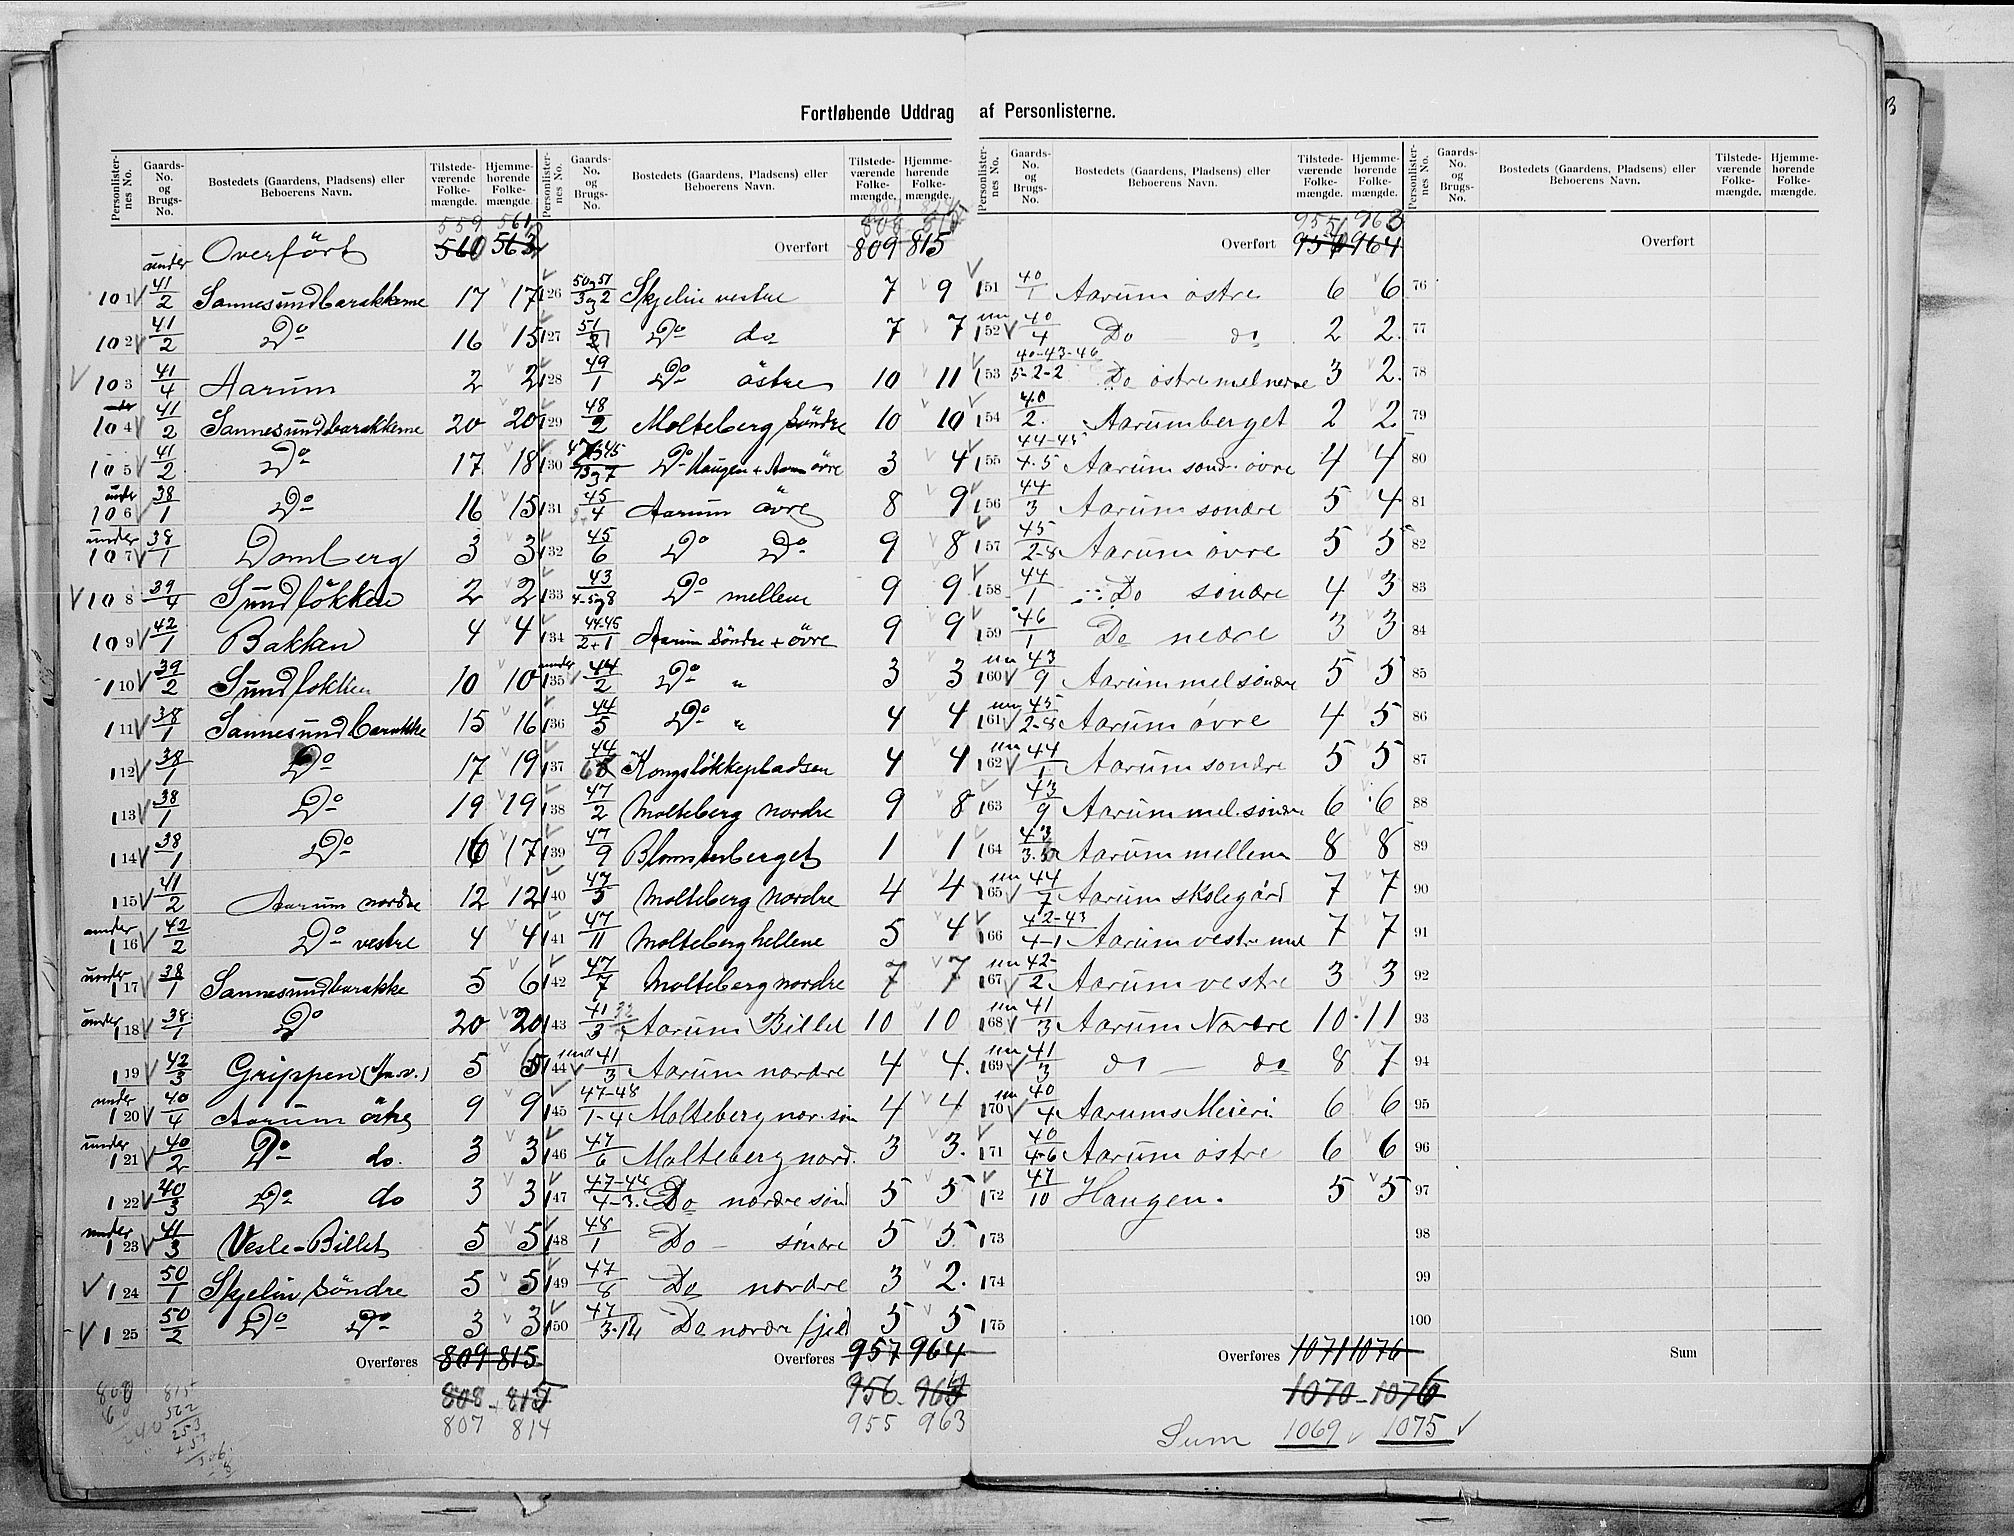 Fortløbende Uddrag af Personlisterne.
Personlister-nes No. Gaards-No. og Brugs-No. Bostedets (Gaardens, Pladsens) eller Beboerens Navn. Tilstede-værende Folke-mængde. Hjemme-hørende Folke-mængde.
559 561
Overført 560 563
under
101 41/2 Sannesundbarakkerne 17 17
102 41/2 Do 16 15
103 41/4 Aarum 2 2
under
104 41/2 Sannesundbarakkerne 20 20
105 41/2 Do 17 18
under
106 38/1 Do 16 15
under
107 38/1 Domberg 3 3
108 39/4 Sundløkken 2 2
109 42/1 Bakken 4 4
110 39/2 Sundløkken 10 10
111 38/1 Sannesundbarakke 15 16
112 38/1 Do 17 19
113 38/1 Do 19 19
114 38/1 Do 16 17
115 41/2 Aarum nordre 12 12
under
116 42/2 Do vestre 4 4
under
117 38/1 Sannesundbarakke 5 6
under
118 38/1 Do 20 20
119 42/3 Grippen 5 5
under
120 40/4 Aarum östre 9 9
under
121 40/2 Do do. 3 3
122 40/3 Do do 3 3
under
123 41/3 Vesle-Billet 5 5
124 50/1 Skjelin söndre 5 5
125 50/2 Do Do 3 3
Overføres 809 815
808 - 815
807 814
Personlister-nes No. Gaards-No. og Brugs-No. Bostedets (Gaardens, Pladsens) eller Beboerens Navn. Tilstede-værende Folke-mængde. Hjemme-hørende Folke-mængde.
Overført 809 815
126 50 og 51/3 og 2 Skjelin vestre 7 9
127 51/1 Do do 7 7
128 49/1 Do östre 10 11
129 48/2 Molteberg söndre 10 10
130 Do Haugen + Aarum övre 3 4
131 45/4 Aarum övre 8 9
132 45/6 Do Do 9 8
133 43/4-5 og 8 Do mellem 9 9
134 44-45/2+1 Aarum söndre + övre 9 9
under
135 44/2 Do " 3 3
136 44/5 Do " 4 4
137 44/6 Kongsløkkepladsen 4 4
138 47/2 Molteberg nordre 9 8
139 47/9 Blomsterberget 1 1
140 47/5 Molteberg nordre 4 4
141 47/11 Molteberghellene 5 4
142 47/7 Molteberg nordre 7 7
143 41/3 Aarum Billet 10 10
und
144 41/3 Aarum nordre 4 4.
145 47-48/1-4 Molteberg nor. sön 4 4
146 47/6 Molteberg nord. 3 3.
147 47-48/4-3. Do nordre sönd 5 5
148 48/1 Do - søndre 5 5.
149 47/8 Do nordre 3 2.
150 Do nordre fjeld 5 5
Overføres 957 964
956.
955 963
Personlister-nes No. Gaards-No. og Brugs-No. Bostedets (Gaardens, Pladsens) eller Beboerens Navn. Tilstede-værende Folke-mængde. Hjemme-hørende Folke-mængde.
955 963
Overført 957 964
151 40/1 Aarum östre 6 6
un
152 40/4 Do - do 2 2.
153 40-43-46/5-2-2 Do östre mel nedre 3 2.
154 40/2. Aarumberget 2 2
155 44-45/4-5 Aarum sond. övre 4 4
156 44/3 Aarum sondre 5 4
157 45/2-8 Aarum övre 5 5
158 44/1 Do söndre 4 3
159 46/1 Do nedre 3 3
un
160 43/9 Aarum mel söndre 5 5
un
161 45/2-8 Aarum övre 4 5
un
162 44/1 Aarum sondre 5 5
163 43/9 Aarum mel. söndre 6 6
164 Aarum mellem 8 8
un
165 44/7 Aarum skolegård 7 7
166 42-43/4-1 Aarum vestre mel 7 7
un
167 42/2 Aarum vestre 3 3
un
168 41/3 Aarum Nordre 10 11
un
169 41/3 do - do 8 7
un
170 40/4 Aarums Meieri 6 6
171 40/4-6 Aarum östre 6 6
172 47/10 Haugen. 5 5
173
174
175
Overføres 1071 1076
1070 - 1076
Sum 1069 1075
Personlister-nes No. Gaards-No. og Brugs-No. Bostedets (Gaardens, Pladsens) eller Beboerens Navn. Tilstede-værende Folke-mængde. Hjemme-hørende Folke-mængde.
Overført
76
77
78
79
80
81
82
83
84
85
86
87
88
89
90
91
92
93
94
95
96
97
98
99
100
Sum